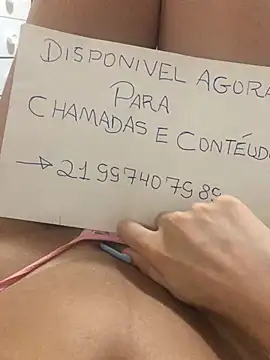 DISPONIVEL AGORA
PARA
CHAMADAS E CONTÉUDO
→ 21997407989